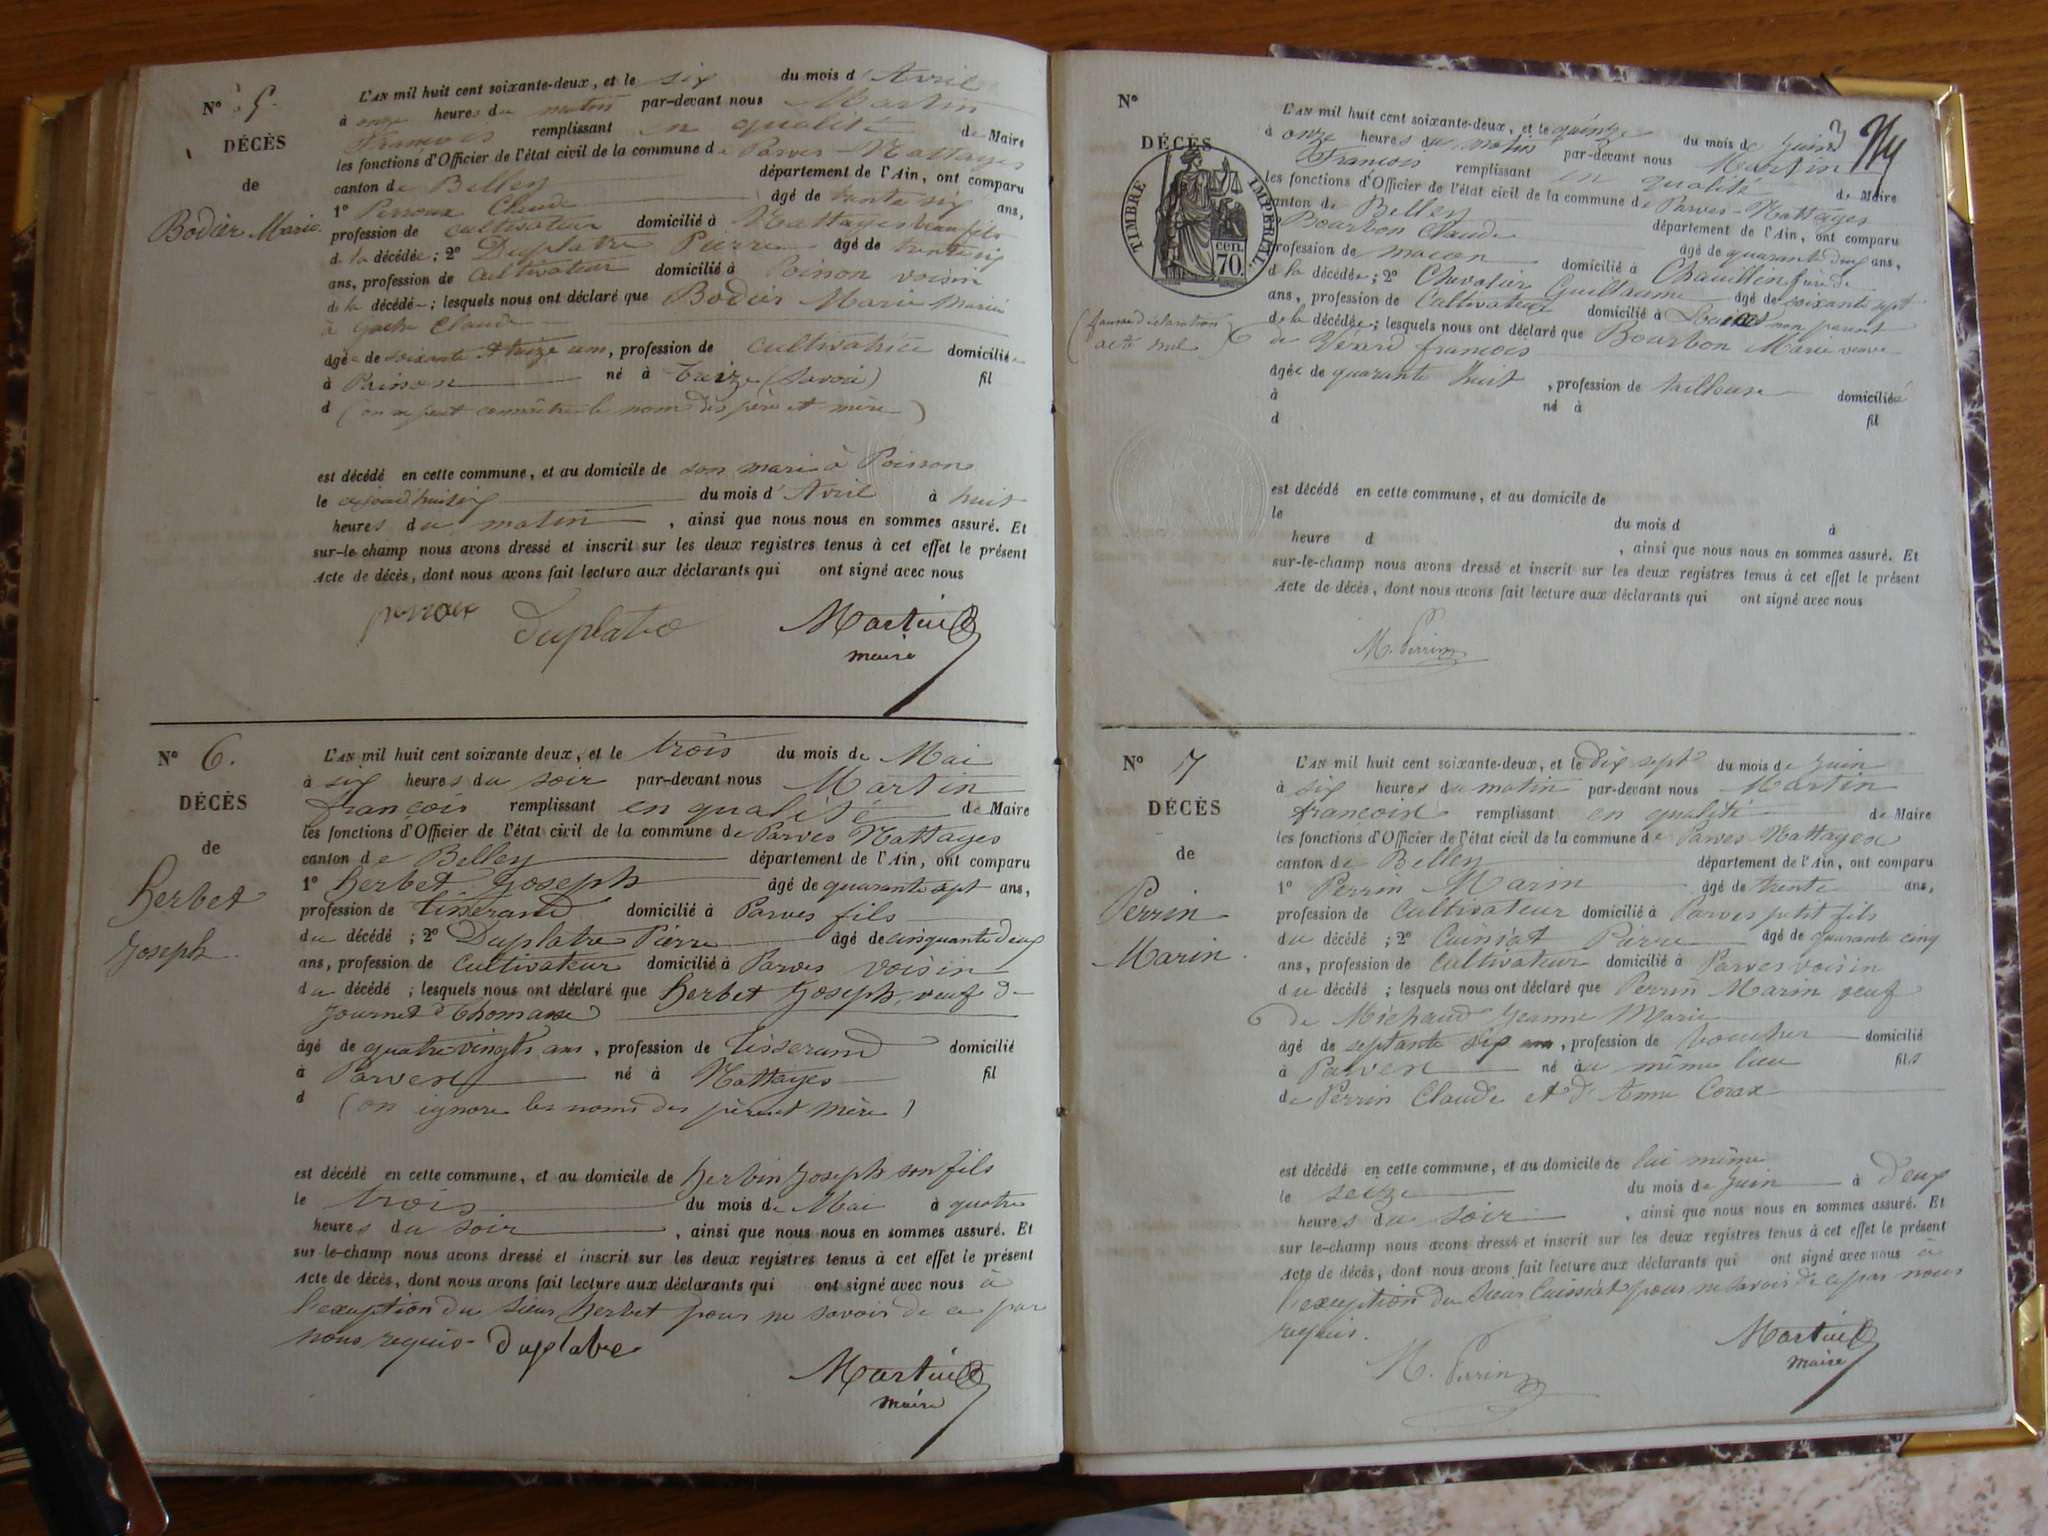 N° 5.
DÉCÈS
de
Bodier Marie
L'AN mil huit cent soixante-deux, et le six du mois d'Avril
à onze heures du matin par-devant nous Martin
François remplissant en qualité de Maire
les fonctions d'Officier de l'état civil de la commune de Parves-Nattages
canton de Belley département de l'Ain, ont comparu
1° Perroux Claude âgé de trente six ans,
profession de cultivateur domicilié à Nattages beau fils
de la décédée; 2° Duplatre Pierre âgé de
ans, profession de cultivateur domicilié à Poirson voisin
de la décédée; lesquels nous ont déclaré que Bodier Marie
à Claude
âgée de soixante et treize ans, profession de cultivatrice domiciliée
à né à (Savoie) fil
d (on ne peut connaître le nom des père et mère)
est décédé en cette commune, et au domicile de son mari à
le du mois d'Avril à huit
heures du matin, ainsi que nous nous en sommes assuré. Et
sur-le champ nous avons dressé et inscrit sur les deux registres tenus à cet effet le présent
Acte de décès, dont nous avons fait lecture aux déclarants qui ont signé avec nous
perroux Duplatre Martin
maire
N° 6.
DÉCÈS
de
herbet
Joseph
L'AN mil huit cent soixante deux, et le trois du mois de Mai
à six heures du soir par-devant nous Martin
françois remplissant en qualité de Maire
les fonctions d'Officier de l'état civil de la commune de Parves Nattages
canton de Belley département de l'Ain, ont comparu
1° herbet Joseph âgé de quarante sept ans,
profession de tisserand domicilié à Parves fils
du décédé; 2° Duplatre Pierre âgé de cinquante deux
ans, profession de cultivateur domicilié à Parves voisin
du décédé; lesquels nous ont déclaré que herbet Joseph, veuf de
Journet
âgé de quatre vingts ans, profession de tisserand domicilié
à Parves né à Nattages fil
d (on ignore les noms des père et mère)
est décédé en cette commune, et au domicile de herbin Joseph son fils
le trois du mois de Mai à quatre
heures du soir, ainsi que nous nous en sommes assuré. Et
sur le-champ nous avons dressé et inscrit sur les deux registres tenus à cet effet le présent
Acte de décès, dont nous avons fait lecture aux déclarants qui ont signé avec nous à
l'exception du sieur herbet pour ne savoir de ce par
nous requis. Duplatre
Martin
maire
N°
DÉCÈS
TIMBRE IMPÉRIAL
70. cen.
(fausse déclaration
acte nul)
L'AN mil huit cent soixante-deux, et le quinze du mois de Juin
à onze heures du matin par-devant nous Martin
François remplissant en qualité de Maire
les fonctions d'Officier de l'état civil de la commune de Parves-Nattages
canton de Belley département de l'Ain, ont comparu
Bourbon Claude âgé de quarante deux ans,
profession de maçon domicilié à frère de
de la décédée; 2° Chevalier Guillaume âgé de soixante sept
ans, profession de Cultivateur domicilié à non parent
de la décédée; lesquels nous ont déclaré que Bourbon Marie veuve
de françois
âgée de quarante huit, profession de tailleuse domiciliée
à né à
d fil
est décédé en cette commune, et au domicile de
le du mois d à
heure d , ainsi que nous nous en sommes assuré. Et
sur-le-champ nous avons dressé et inscrit sur les deux registres tenus à cet effet le présent
Acte de décès, dont nous avons fait lecture aux déclarants qui ont signé avec nous
M. Perrin
N° 7
DÉCÈS
de
Perrin
Marin
L'AN mil huit cent soixante-deux, et le dix sept du mois de Juin
à six heures du matin par-devant nous Martin
françois remplissant en qualité de Maire
les fonctions d'Officier de l'état civil de la commune de Parves Nattages
canton de Belley département de l'Ain, ont comparu
1° Perrin Marin âgé de trente ans,
profession de cultivateur domicilié à Parves petit fils
du décédé; 2° Cuissat Pierre âgé de quarante cinq
ans, profession de Cultivateur domicilié à Parves voisin
du décédé; lesquels nous ont déclaré que Perrin Marin veuf
de Michaud Jeanne Marie
âgé de septante six ans, profession de boucher domicilié
à Parves né au même lieu fils
de Perrin Claude et d'Anne Corax
est décédé en cette commune, et au domicile de lui même
le seize du mois de Juin à deux
heures du soir, ainsi que nous nous en sommes assuré. Et
sur le-champ nous avons dressé et inscrit sur les deux registres tenus à cet effet le présent
Acte de décès, dont nous avons fait lecture aux déclarants qui ont signé avec nous à
l'exception du Sieur Cuissat pour ne savoir de ce par nous
requis.
M. Perrin Martin
maire